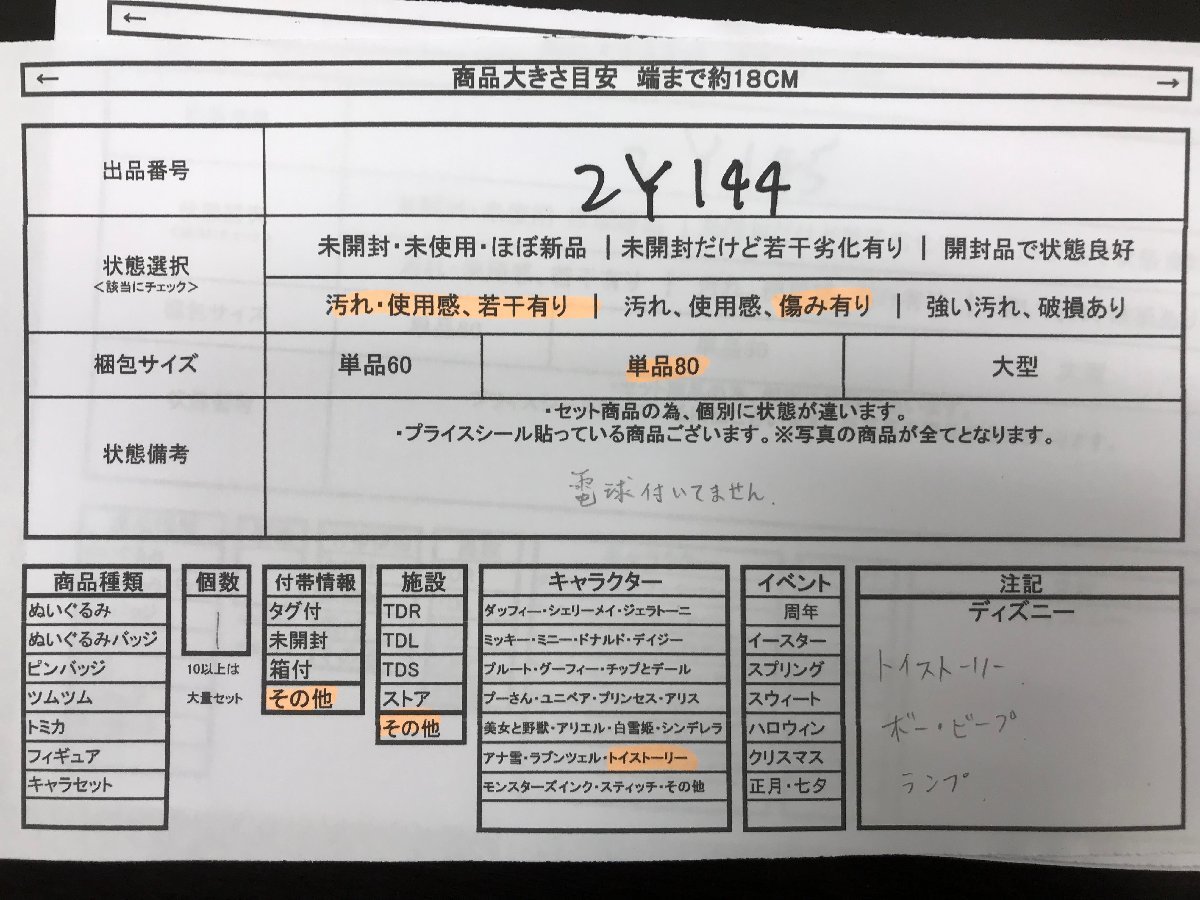 ←
← 商品大きさ目安 端まで約18CM →
出品番号 2Y144
状態選択
<該当にチェック>
未開封・未使用・ほぼ新品 | 未開封だけど若干劣化有り | 開封品で状態良好
汚れ・使用感、若干有り | 汚れ、使用感、傷み有り | 強い汚れ、破損あり
梱包サイズ 単品60 単品80 大型
状態備考
・セット商品の為、個別に状態が違います。
・プライスシール貼っている商品ございます。※写真の商品が全てとなります。
電球付いてません.
商品種類
ぬいぐるみ
ぬいぐるみバッジ
ピンバッジ
ツムツム
トミカ
フィギュア
キャラセット
個数
1
10以上は
大量セット
付帯情報
タグ付
未開封
箱付
その他
施設
TDR
TDL
TDS
ストア
その他
キャラクター
ダッフィー・シェリーメイ・ジェラトーニ
ミッキー・ミニー・ドナルド・デイジー
プルート・グーフィー・チップとデール
プーさん・ユニベア・プリンセス・アリス
美女と野獣・アリエル・白雪姫・シンデレラ
アナ雪・ラプンツェル・トイストーリー
モンスターズインク・スティッチ・その他
イベント
周年
イースター
スプリング
スウィート
ハロウィン
クリスマス
正月・七夕
注記
ディズニー
トイストーリー
ボー・ピープ
ランプ